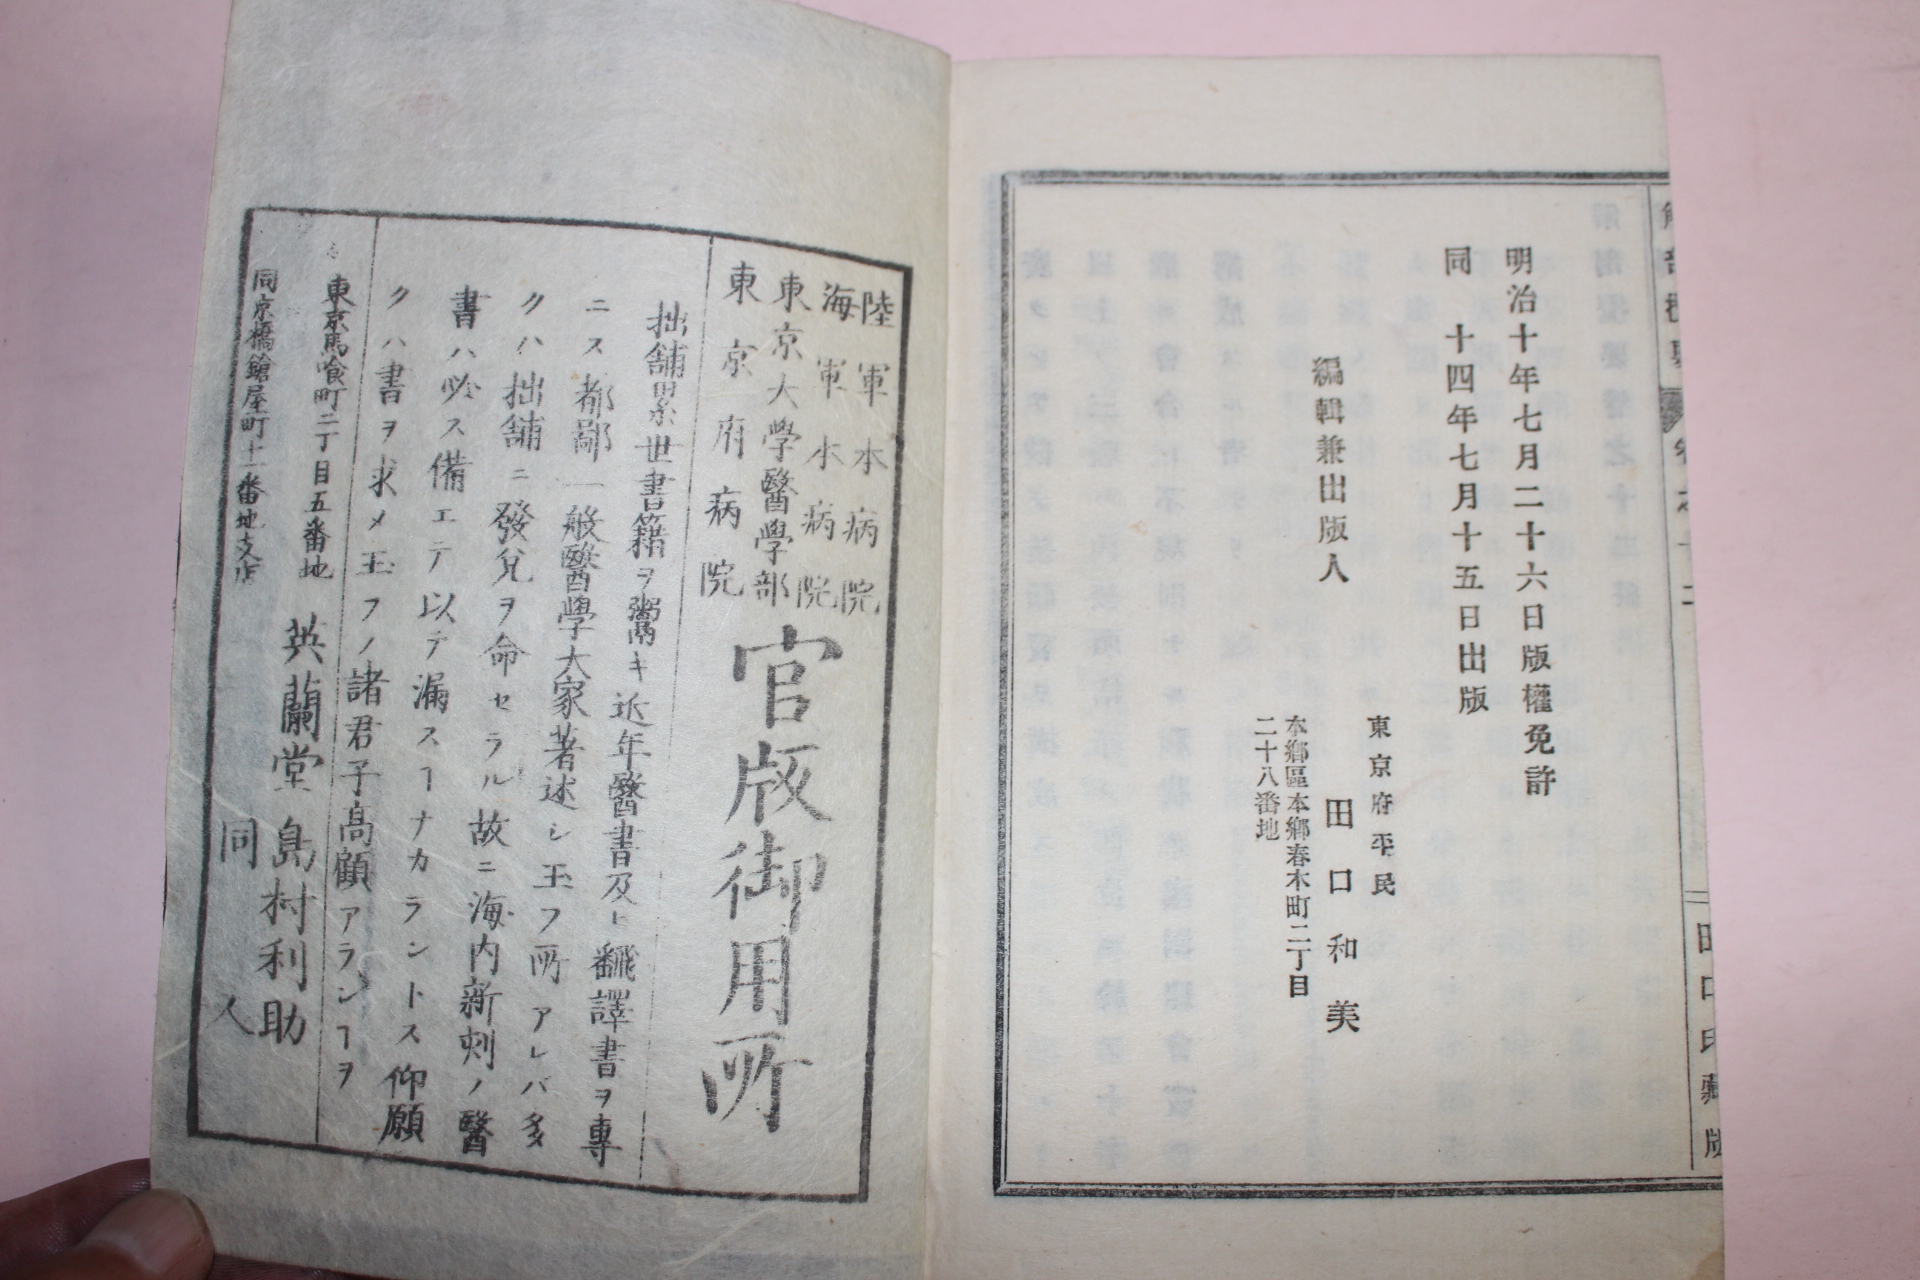 解剖攬要 卷之十二 田口氏藏版
明治十年七月二十六日版權免許
同 十四年七月十五日出版
編輯兼出版人
東京府平民
田口和美
本鄉區本鄉春木町二丁目
二十八番地
陸軍本病院
海軍本病院
東京大學醫學部
東京府病院
官版御用所
拙舖累世書籍ヲ鬻キ近年醫書及ヒ飜譯書ヲ專
ニス都鄙一般醫學大家著述シ玉フ所アレバ多
クハ拙舖ニ發兌ヲ命セラル故ニ海内新刺ノ醫
書ハ必ス備エテ以テ漏スヿナカラントス仰願
クハ書ヲ求メ玉フノ諸君子高顧アランヿヲ
東京馬喰町二丁目五番地 英蘭堂 島村利助
同京橋鎗屋町十一番地支店 同人